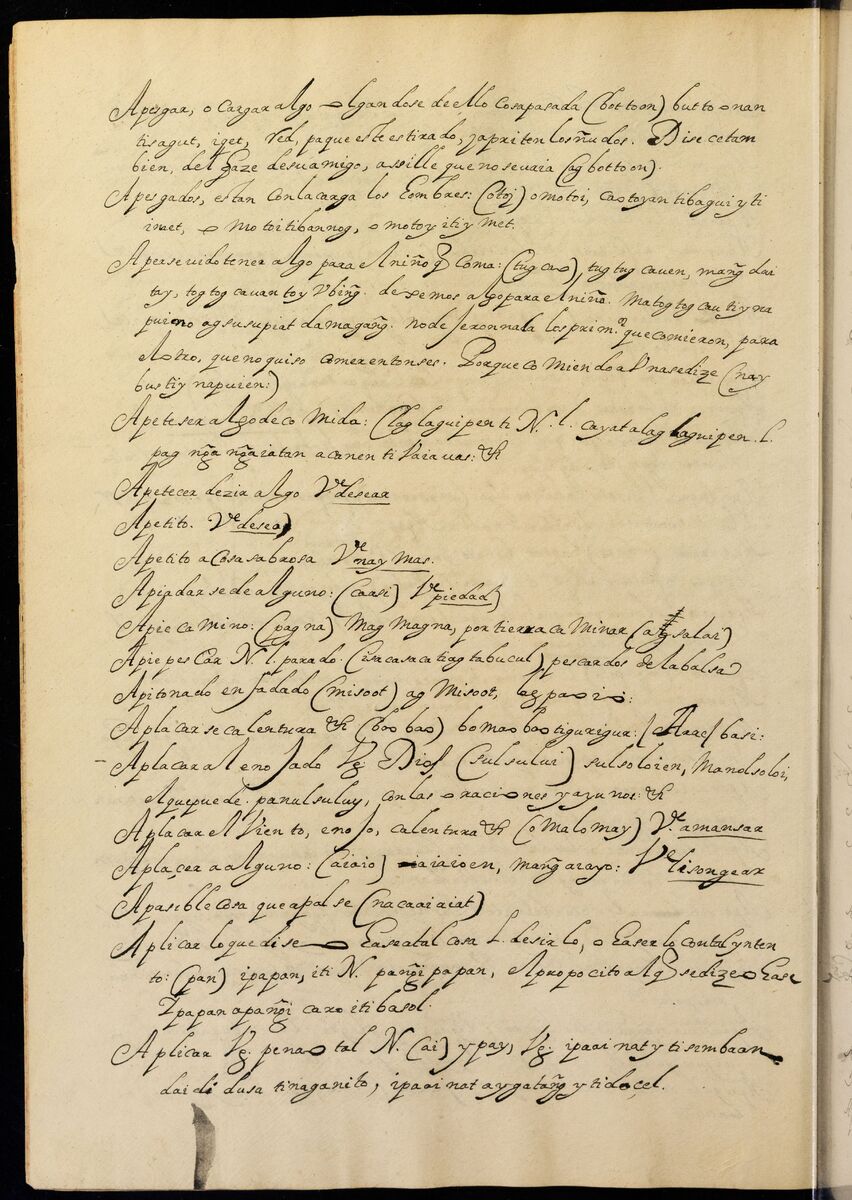 Apesgar, o cargar algo olgandose de ello cosa pasada (bottoon) buttonan
tisagut, iget, red, paque este estirado, y apriten los ñudos. Dise cetam
bien, del q haze desu amigo, assille que no se vaia (ag bottoon).
Apesgados, estan con la carga los hombres: (otoj) o motoi, caotoyan tibagui y ti
inaet, o mo toi tibannog, o motoy iti y met.
Apersevido tener algo para el niño q coma: (tug cao), tug tug cauen, mañg dai
tay, tog tog cauan toy Vbing. dexemos algo para el niño. Matog tog cau ti y na
puieno ag susupiat da magañg. no deseronnada los prim.os que comieron, para
el otro, que no quiso comer entonses. Porque comiendo a Vna se dize (nay
bus ti y napuien:)
Apeteser algo de comida: (lag laguipen ti N. l. cayat a lag laguipen. l.
pag nga ngaiatan a canen ti Vaiauas: &
Apetecer dezir algo Ve desear
Apetito. Ve desear
Apetito a cosa sabrosa Ve nay mas.
Apiadarse de alguno: (caasi) Ve piedad
Apie camino: (pagna) Mag magna, por tierra caminar (ag salai)
Apie pescar N. l. parado: (isa casaca tiag tabucul) pescardos de la balsa
Apitonado enfadado (misoot) ag misoot, ag paoio:
Aplacarse calentura & (boo bao) bo mao bao tigurigur: / Arac / basi:
Aplacar al enojado Vg. Dios (sulsului) sulsoloien, Manolsoloi,
el que puede. panulsuluy, con las oraciones y ayunos: &
Aplacar el Viento, enojo, calentura & (o Malo may) Ve. amansar
Aplaçer a alguno: (aiaio) aiaioen, mañg arayo: Ve lisongear
Apasible cosa que aplase (nacaaiaiat)
Aplicar lo que dise o hase a tal cosa l. desirlo, o haser lo con tal ynten
to: (pan) ipapan, iti N. pangi papan, Aproposito alg se dize o hase
Ypapan apangi caro iti basol.
Aplicar Vg. pena o tal N. (ai) y pay, Vg. ipaai nat y ti simbaan
dai di dusa tinaganito, ipaai nat ay gatang y ti docel.